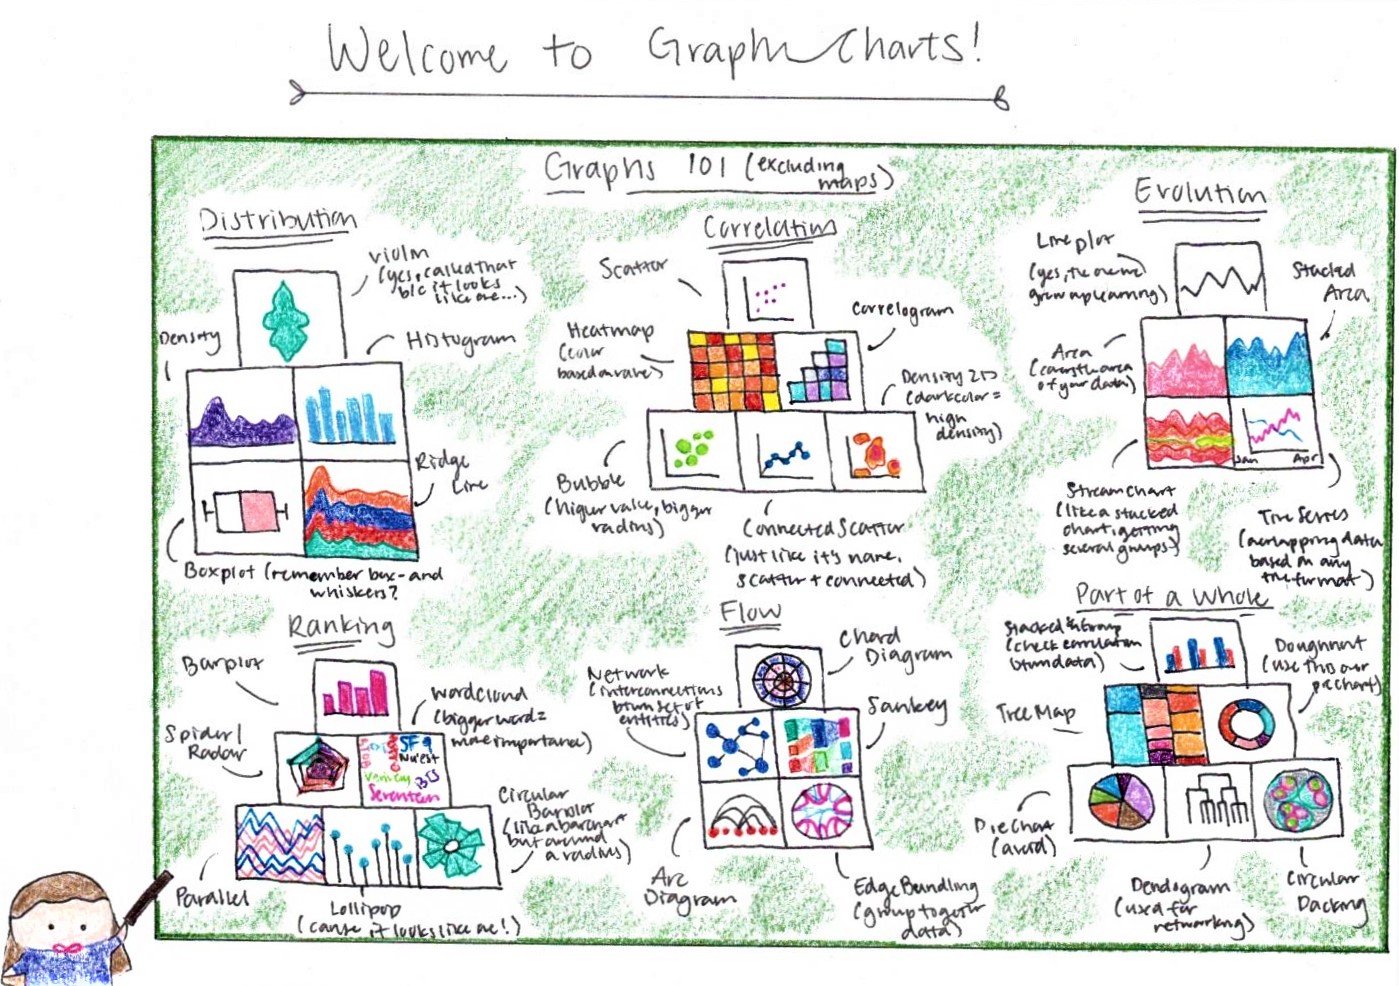 Welcome to Graph Charts!
Graphs 101 (excluding
maps)
Distribution
violin
(yes, called that
b/c it looks
like one...)
Density
Histogram
Ridge
Line
Boxplot (remember box-and
whiskers?
Correlation
Scatter
Correlogram
Heatmap
(color
based on value)
Density 2D
(dark color =
high
density)
Bubble
(higher value, bigger
radius)
Connected Scatter
(just like it's name,
scatter + connected)
Evolution
Line plot
(yes, the one we
grow up learning)
Stacked
Area
Area
(covers the area
of your data)
Jan Apr
Stream chart
(like a stacked
chart, getting
several groups)
Time Series
(overlapping data
based on any
time format)
Ranking
Barplot
Wordcloud
(bigger word =
more importance)
Spider/
Radar
SF9
Nu'est
Verivery
Seventeen
Circular
Barplot
(like a bar chart
but around
a radius)
Parallel
Lollipop
(cause it looks like one!)
Flow
Chord
Diagram
Network
(interconnections
btwn set of
entities)
Sankey
Arc
Diagram
Edge Bundling
(group together
data)
Part of a Whole
Stacked Group
(check correlation
btwn data)
Doughnut
(use this over
pie chart)
Tree Map
Pie Chart
(avoid)
Dendogram
(used for
networking)
Circular
Packing